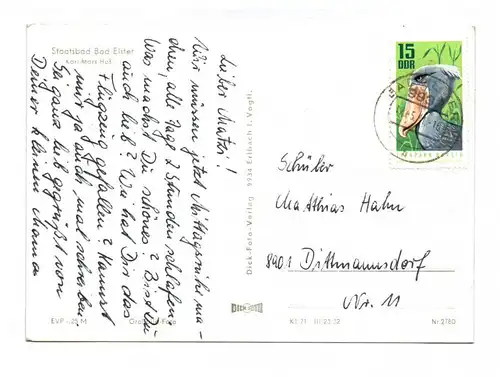 Staatsbad Bad Elster
Karl-Marx-Hof
Lieber Matzi!
Wir müssen jetzt Mittagsruhe ma-
chen, alle Tage 2 Stunden schlafen.
Was machst Du schönes? Bist Du
auch lieb? Wie hat Dir das
Flugzeug gefallen? Kannst
mir ja auch mal schreiben.
Sei ganz lieb gegrüßt von
Deiner kleinen Maman
Dick-Foto-Verlag 9934 Erlbach i. Vogtl.
15
DDR
Schüler
Matthias Hahn
8901 Dittmannsdorf
Nr. 11
EVP -,25 M
DICK FOTO
Nr 2780